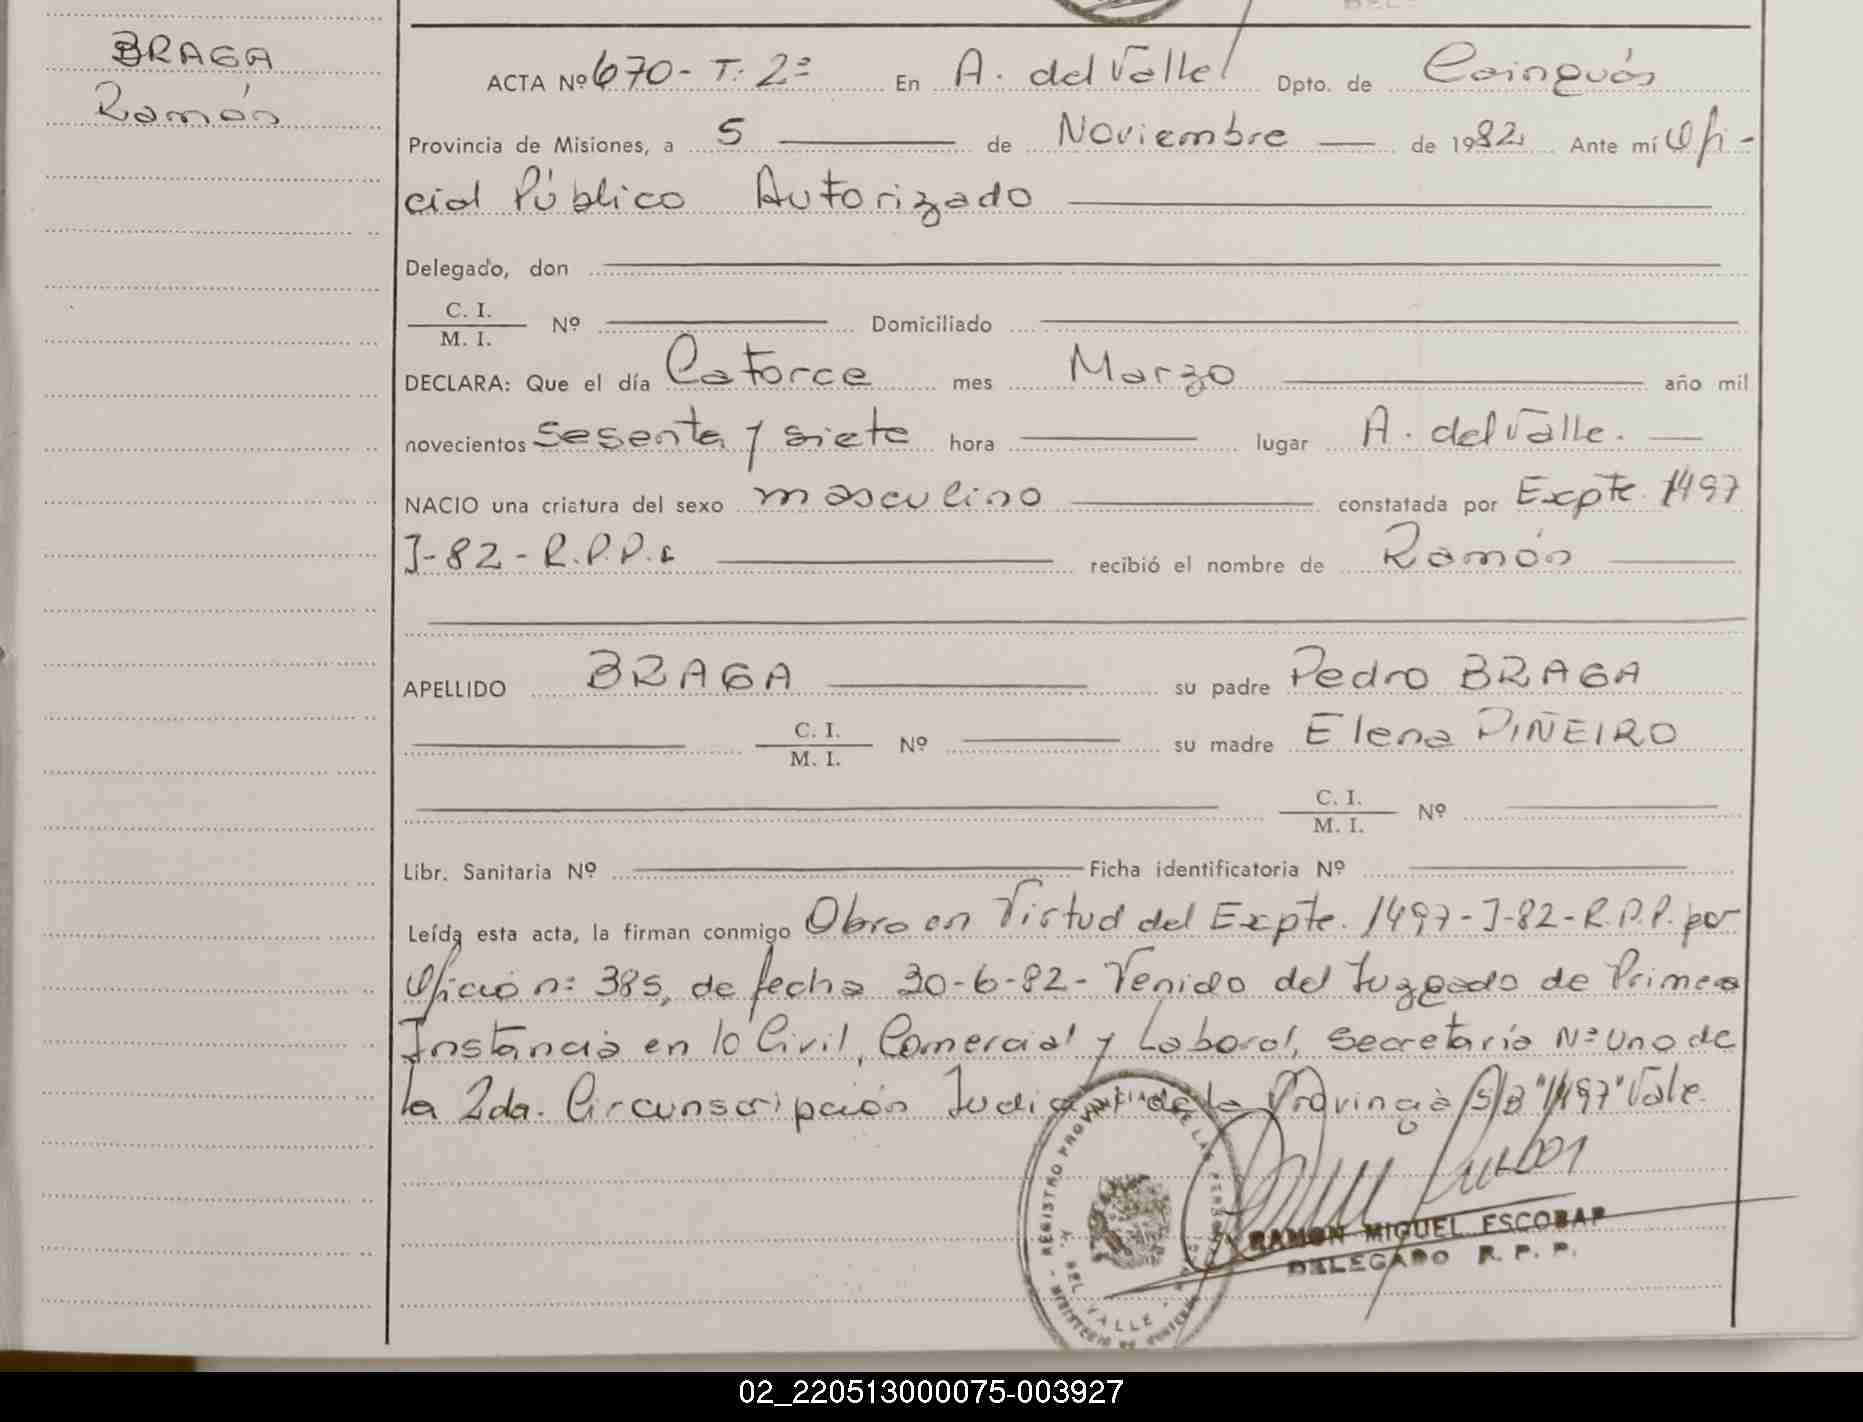 BRAGA
Ramón
ACTA Nº 670- T: 2º En A. del Valle Dpto. de Cainguás
Provincia de Misiones, a 5 de Noviembre de 1982 Ante mí Ofi-
cial Público Autorizado
Delegado, don
C. I.
M. I. Nº Domiciliado
DECLARA: Que el día Catorce mes Marzo año mil
novecientos sesenta y siete hora lugar A. del Valle.
NACIO una criatura del sexo masculino constatada por Expte. 1497
J-82-R.P.P. recibió el nombre de Ramón
APELLIDO BRAGA su padre Pedro BRAGA
C. I.
M. I. Nº su madre Elena PIÑEIRO
C. I.
M. I. Nº
Libr. Sanitaria Nº Ficha identificatoria Nº
Leída esta acta, la firman conmigo Obro en Virtud del Expte. 1497-J-82-R.P.P. por
Oficio nº 385, de fecha 30-6-82- Venido del Juzgado de Primera
Instancia en lo Civil, Comercial y Laboral, Secretaría Nº Uno de
la 2da. Circunscripción Judicial de la Provincia S/B "1497" Vale.
REGISTRO PROVINCIAL DE LAS PERSONAS
DEL VALLE
MINISTERIO DE
RAMON MIGUEL ESCOBAR
DELEGADO R. P. P.
02_220513000075-003927